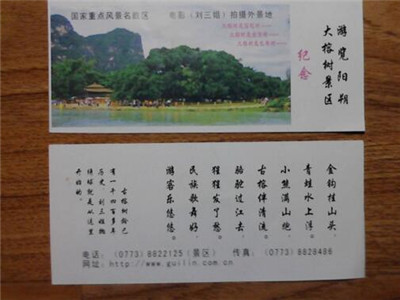 国家重点风景名胜区 电影《刘三姐》拍摄外景地
游览阳朔
大榕树景区
纪念
金钩挂山头，
青蛙水上浮，
小熊满山跑，
古榕伴清流，
骆驼过江去，
猩猩发了愁，
民族歌舞好，
游客乐悠悠。
古榕树龄已
有一千四百多年
历史，刘三姐抛
绣球就是从这里
开始的。
电话：（0773）8822125（景区） 传真：（0773）8828486
网址：http://www.guilin.com.cn